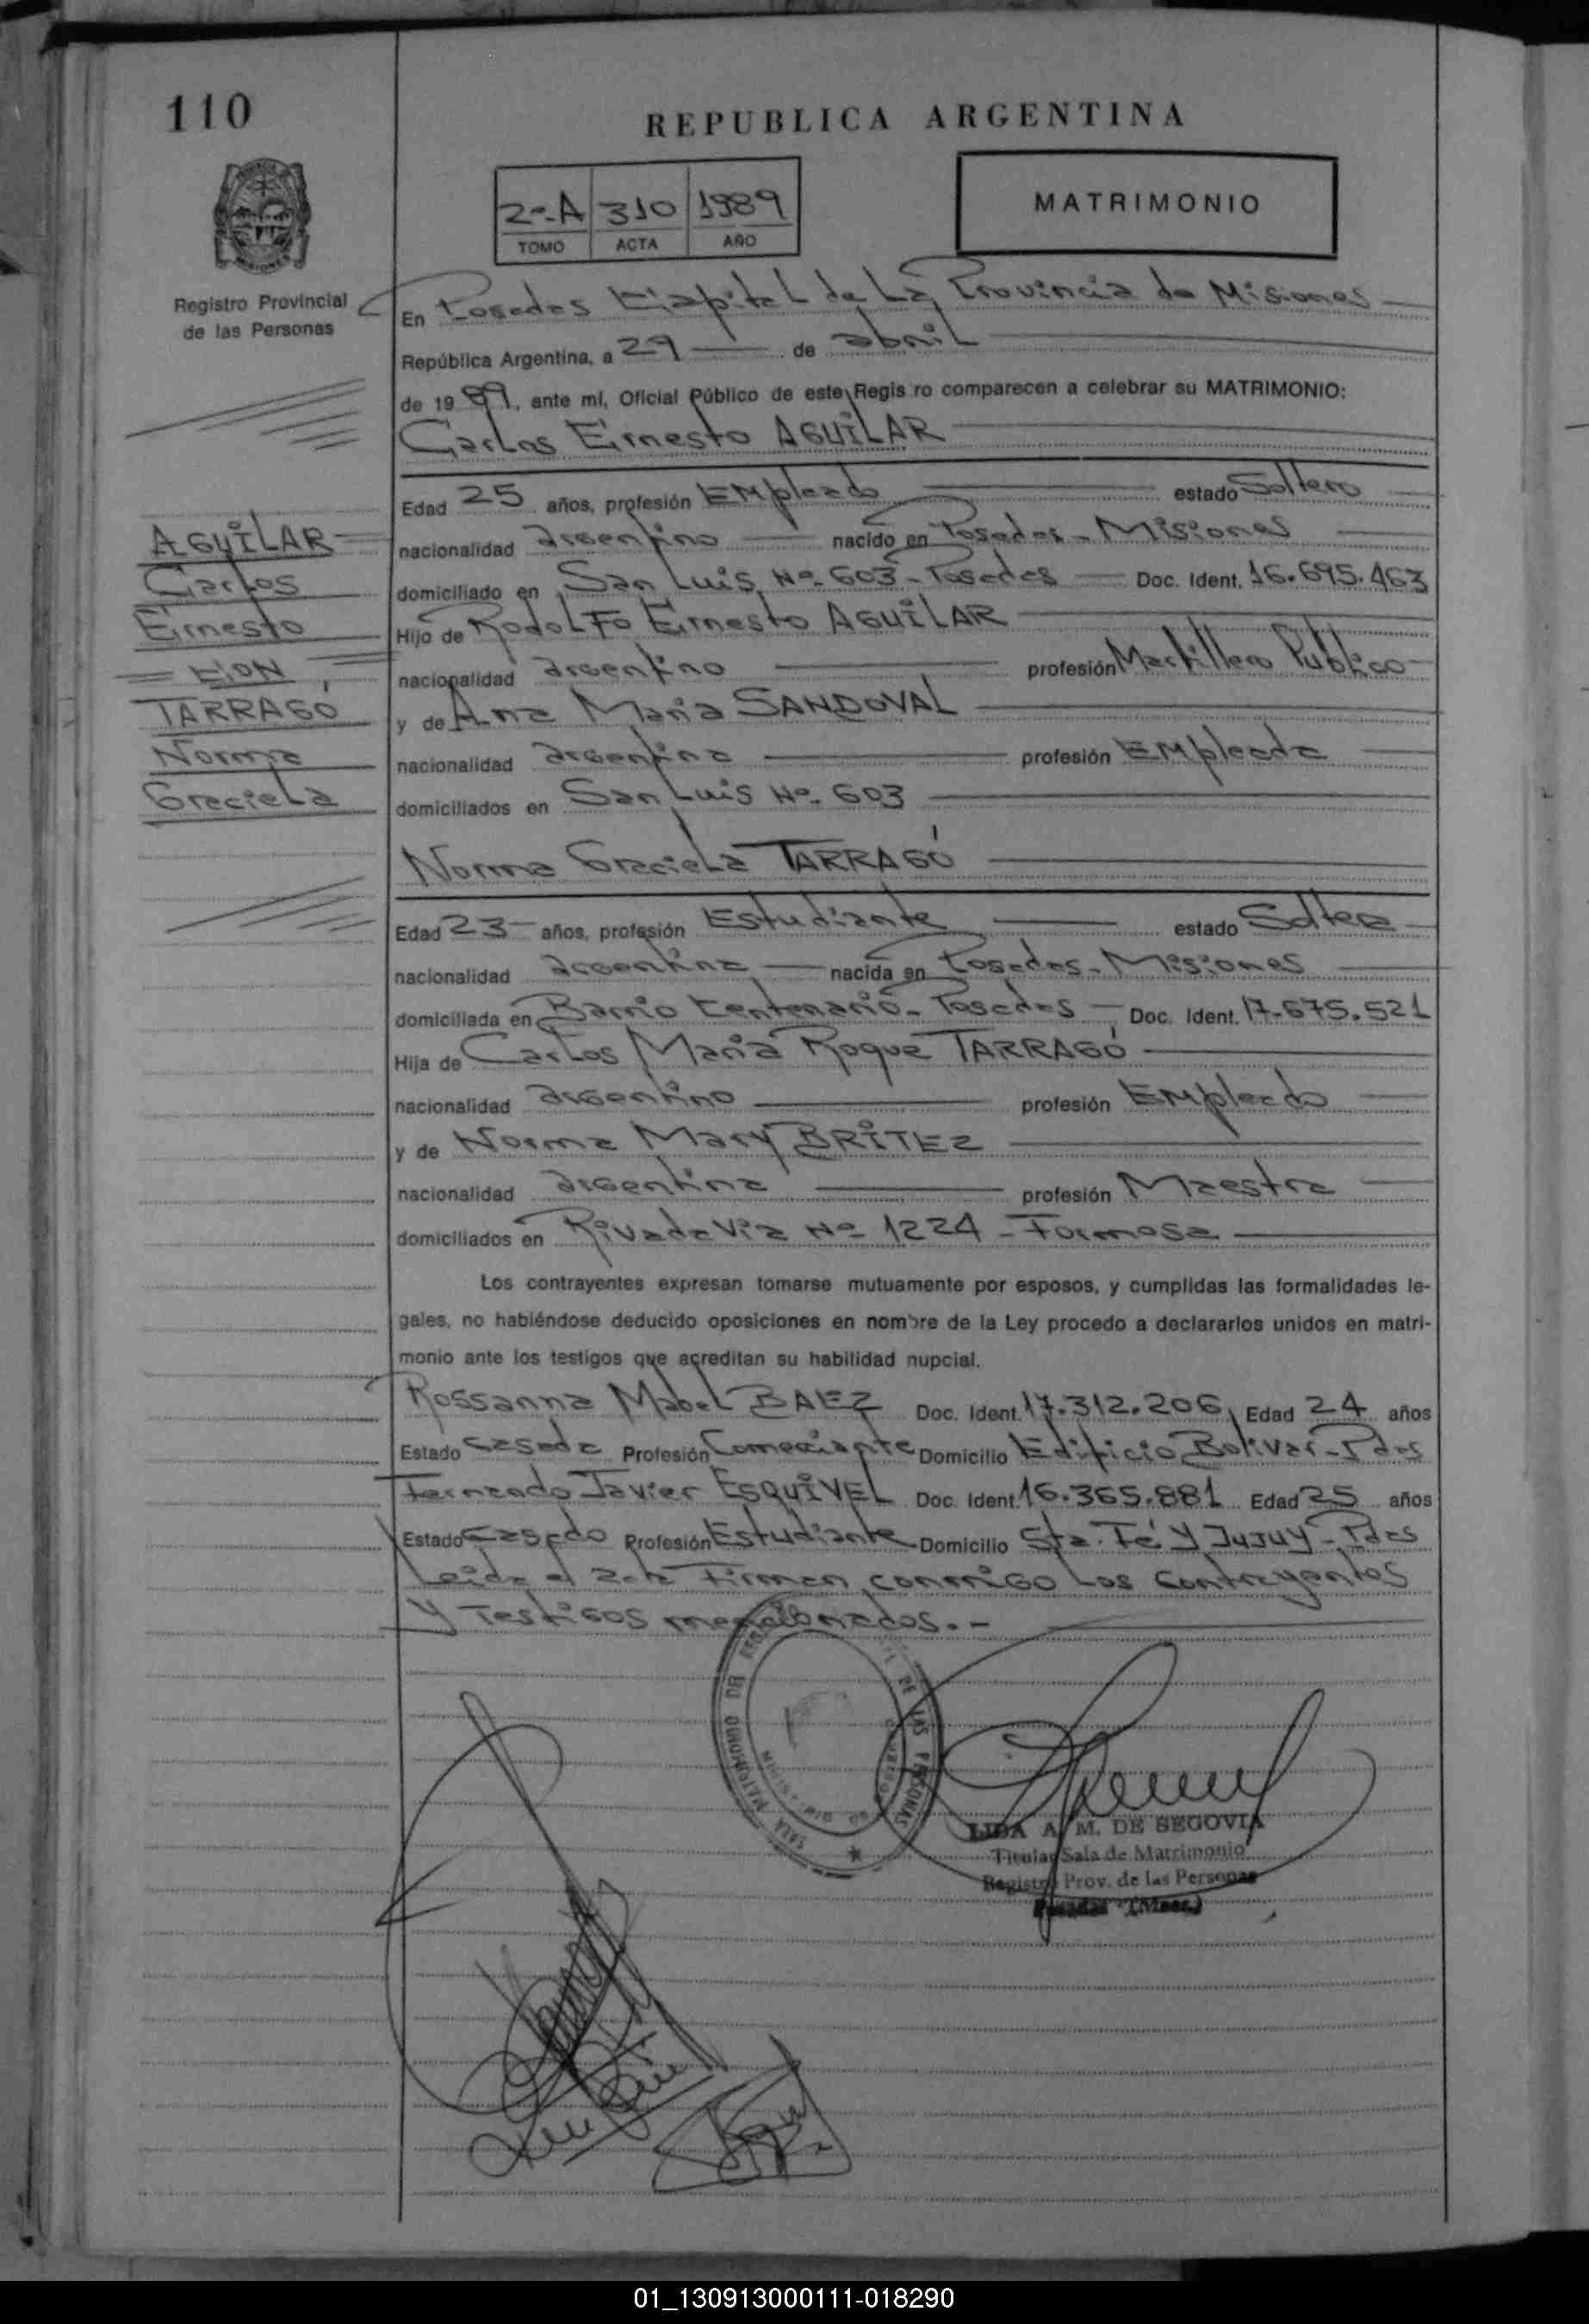 110
REPUBLICA ARGENTINA
2º-A 310 1989
TOMO ACTA AÑO
MATRIMONIO
PROVINCIA DE MISIONES
Registro Provincial
de las Personas
En Posadas Capital de La Provincia de Misiones
República Argentina, a 29 de abril
de 1989, ante mí, Oficial Público de este Regis ro comparecen a celebrar su MATRIMONIO:
Carlos Ernesto AGUILAR
Edad 25 años, profesión Empleado estado Soltero
nacionalidad argentino nacido en Posadas - Misiones
domiciliado en San Luis Nº 603 - Posadas Doc. Ident. 16.695.463
Hijo de Rodolfo Ernesto AGUILAR
nacionalidad argentino profesión Martillero Publico
y de Ana Maria SANDOVAL
nacionalidad argentina profesión Empleada
domiciliados en San Luis Nº 603
AGUILAR
Carlos
Ernesto
CON
TARRAGÓ
Norma
Graciela
Norma Graciela TARRAGÓ
Edad 23 años, profesión Estudiante estado Soltera
nacionalidad argentina nacida en Posadas - Misiones
domiciliada en Barrio Centenario - Posadas Doc. Ident. 17.675.521
Hija de Carlos Maria Roque TARRAGÓ
nacionalidad argentino profesión Empleado
y de Norma Mary BRITEZ
nacionalidad argentina profesión Maestra
domiciliados en Rivadavia Nº 1224 - Formosa
Los contrayentes expresan tomarse mutuamente por esposos, y cumplidas las formalidades le-
gales, no habiéndose deducido oposiciones en nombre de la Ley procedo a declararlos unidos en matri-
monio ante los testigos que acreditan su habilidad nupcial.
Rossanna Mabel BAEZ Doc. Ident. 17.312.206 Edad 24 años
Estado casada Profesión Comerciante Domicilio Edificio Bolivar - Pdas
Fernando Javier ESQUIVEL Doc. Ident. 16.365.881 Edad 25 años
Estado casado Profesión Estudiante Domicilio Sta. Fé y Jujuy - Pdas
Leida el acta Firman conmigo Los Contrayentes
y Testigos mencionados.-
SALA MATRIMONIO DE LAS PERSONAS
LIDA A. M. DE SEGOVIA
Titular Sala de Matrimonio
Registro Prov. de las Personas
Posadas (Mnes.)
01_130913000111-018290